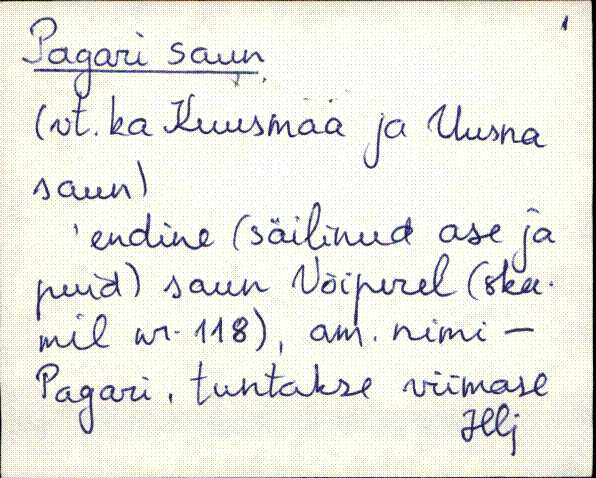 1
Pagari saun
(vt. ka Kuusmaa ja Uusna
saun)
'endine (säilinud ase ja
puid) saun Võiperel (ska-
mil nr. 118), am. nimi –
Pagari, tuntakse viimase
Hlj